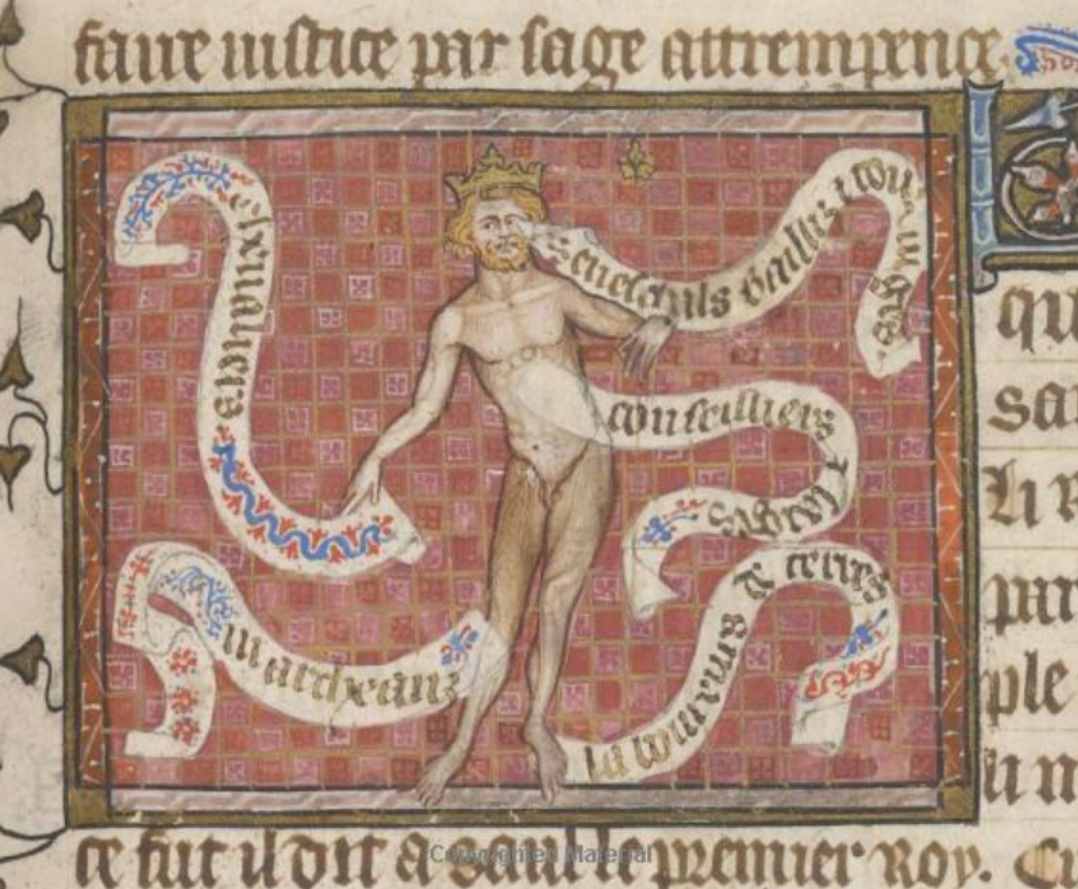 faire iustice par sage attrempence.
chevaliers
Seneschauls baillis et
iuges.
conseilliers
et sages
marcheans
laboureurs de terres
qu
sa
Li R
par
ple
li m
ce fut il dit a saul le premier Roy. Ci
Copyrighted Material